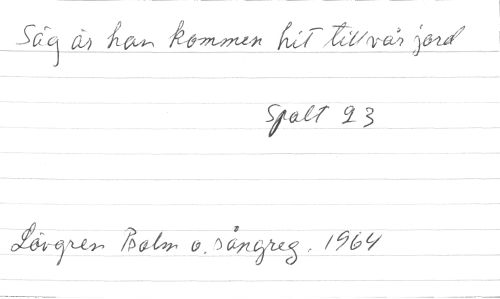 Säg är han kommen hit till vår jord
Spalt 23
Lövgren Psalm o. sångreg. 1964